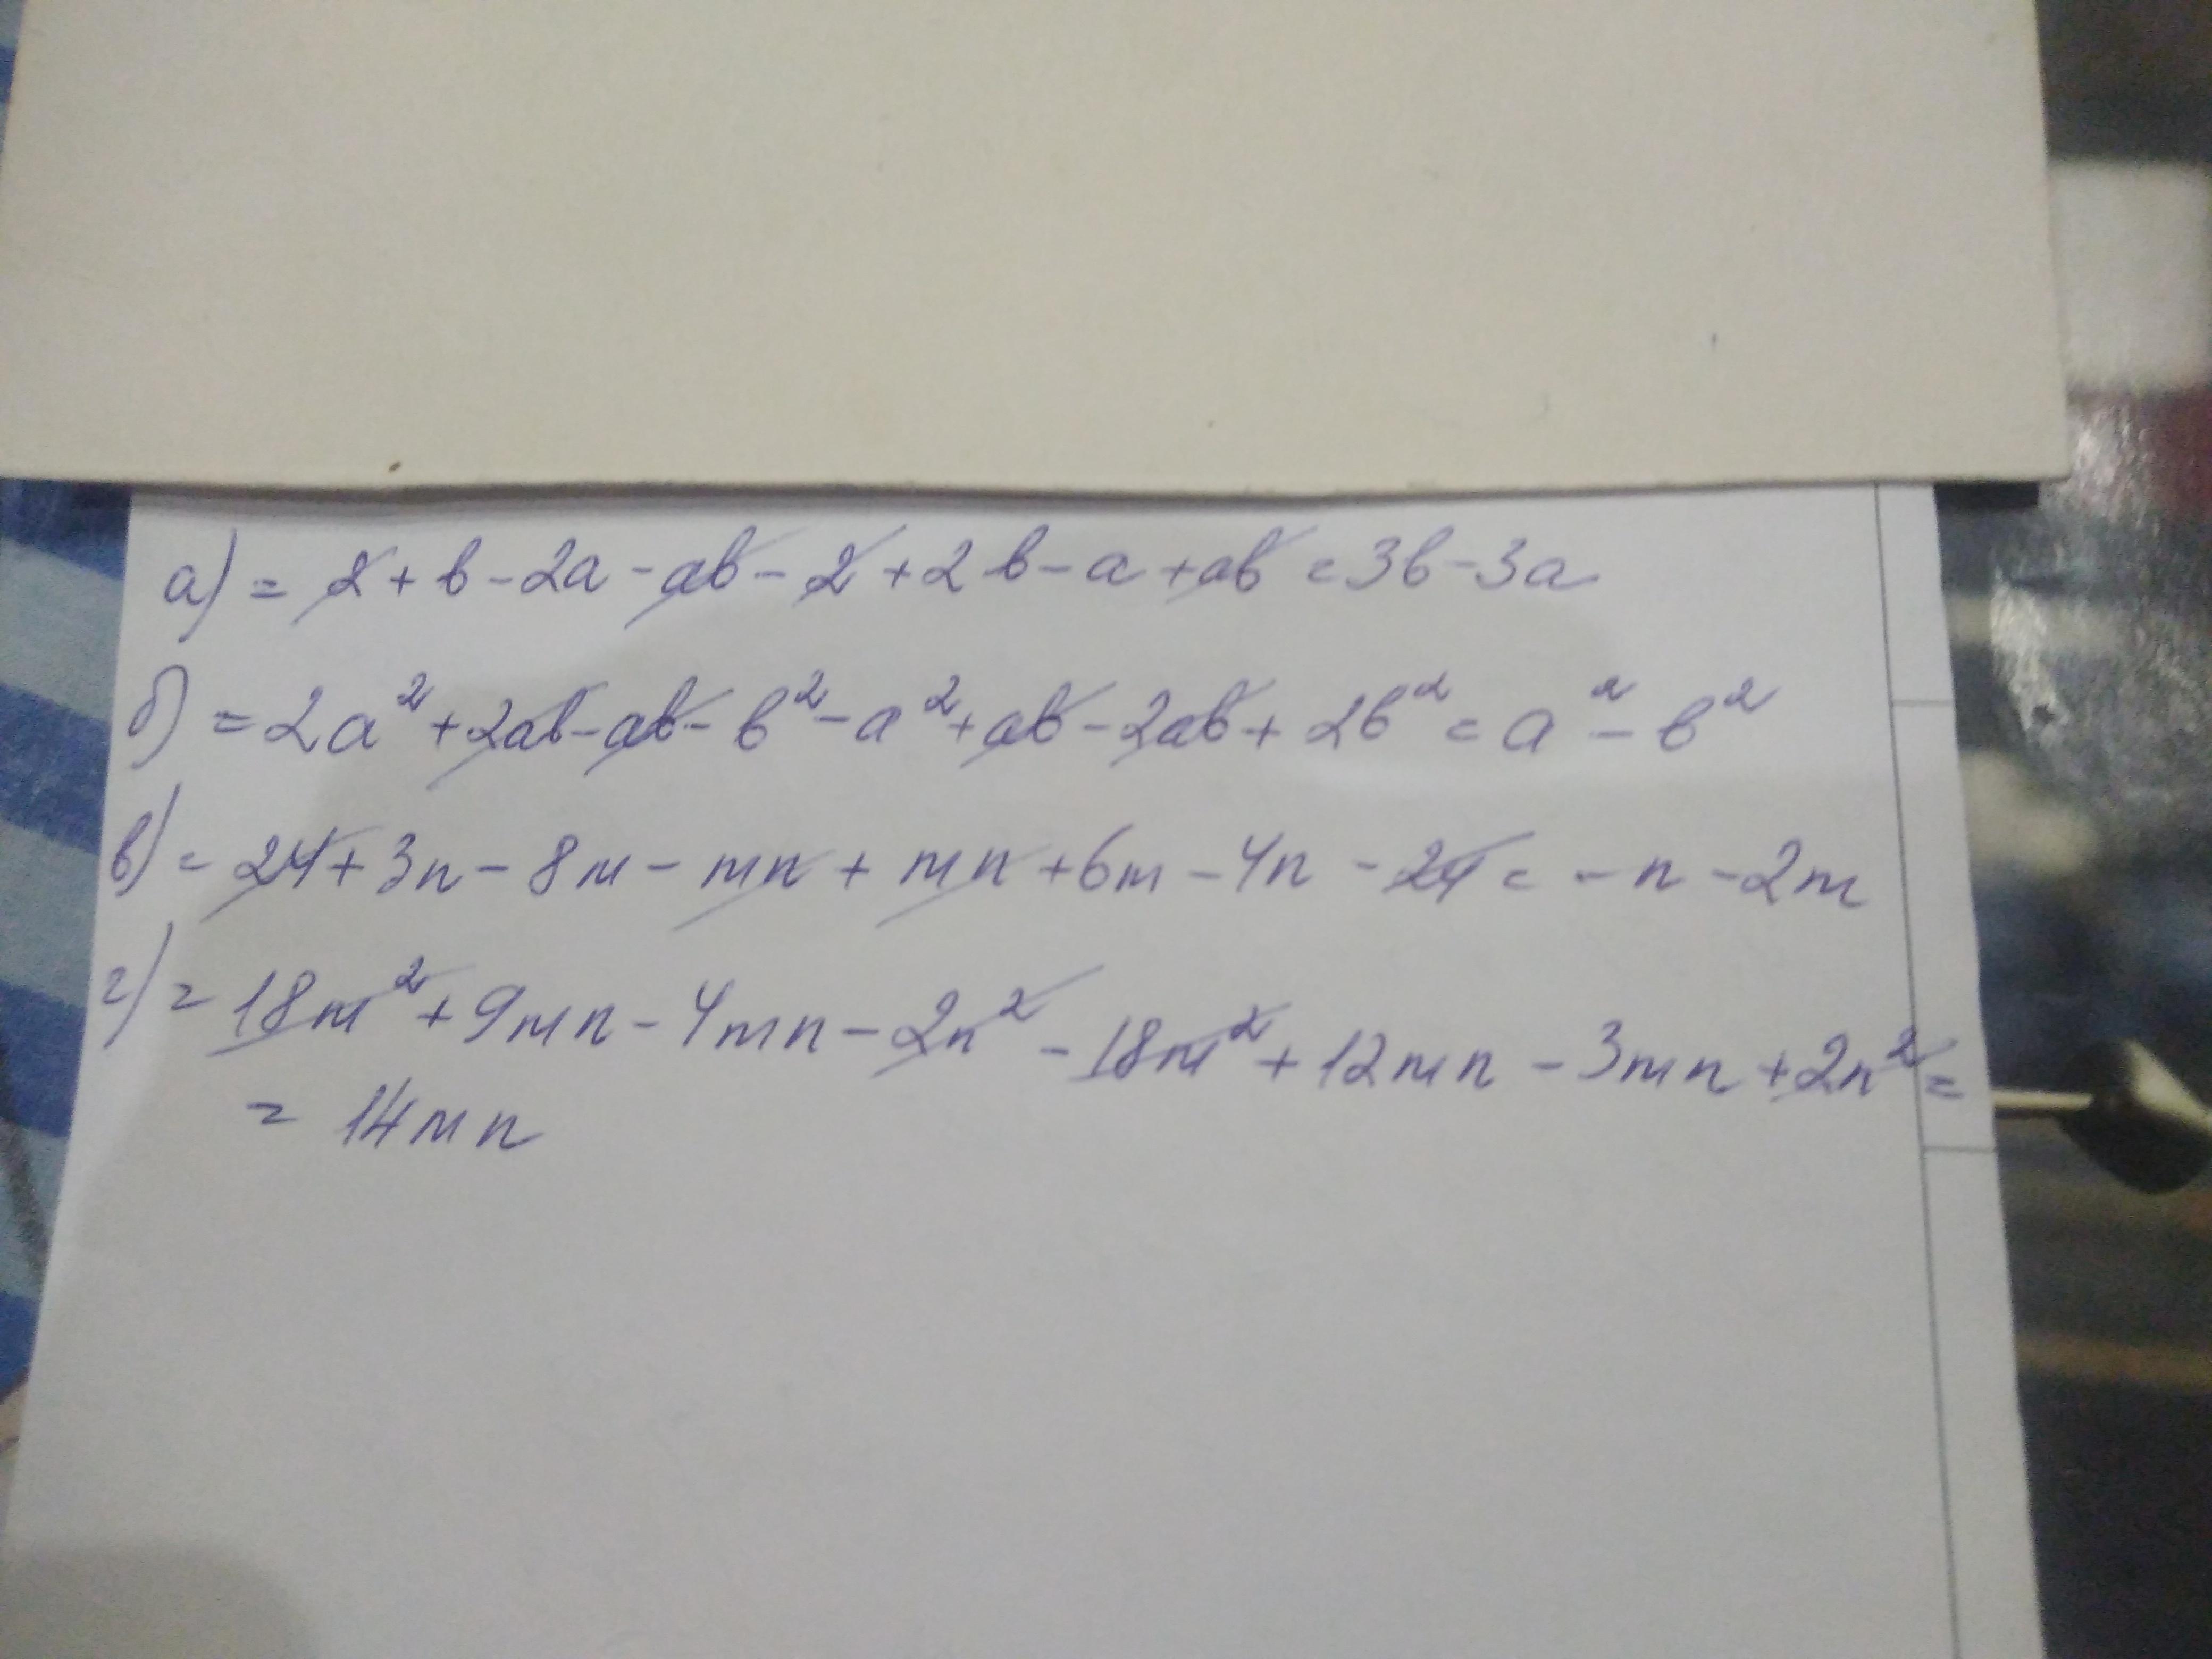 а) = 2 + b - 2a - ab - 2 + 2b - a + ab = 3b - 3a
б) = 2a² + 2ab - ab - b² - a² + ab - 2ab + 2b² = a² - b²
в) = 24 + 3n - 8m - mn + mn + 6m - 4n - 24 = -n - 2m
г) = 18m² + 9mn - 4mn - 2n² - 18m² + 12mn - 3mn + 2n² =
= 14mn